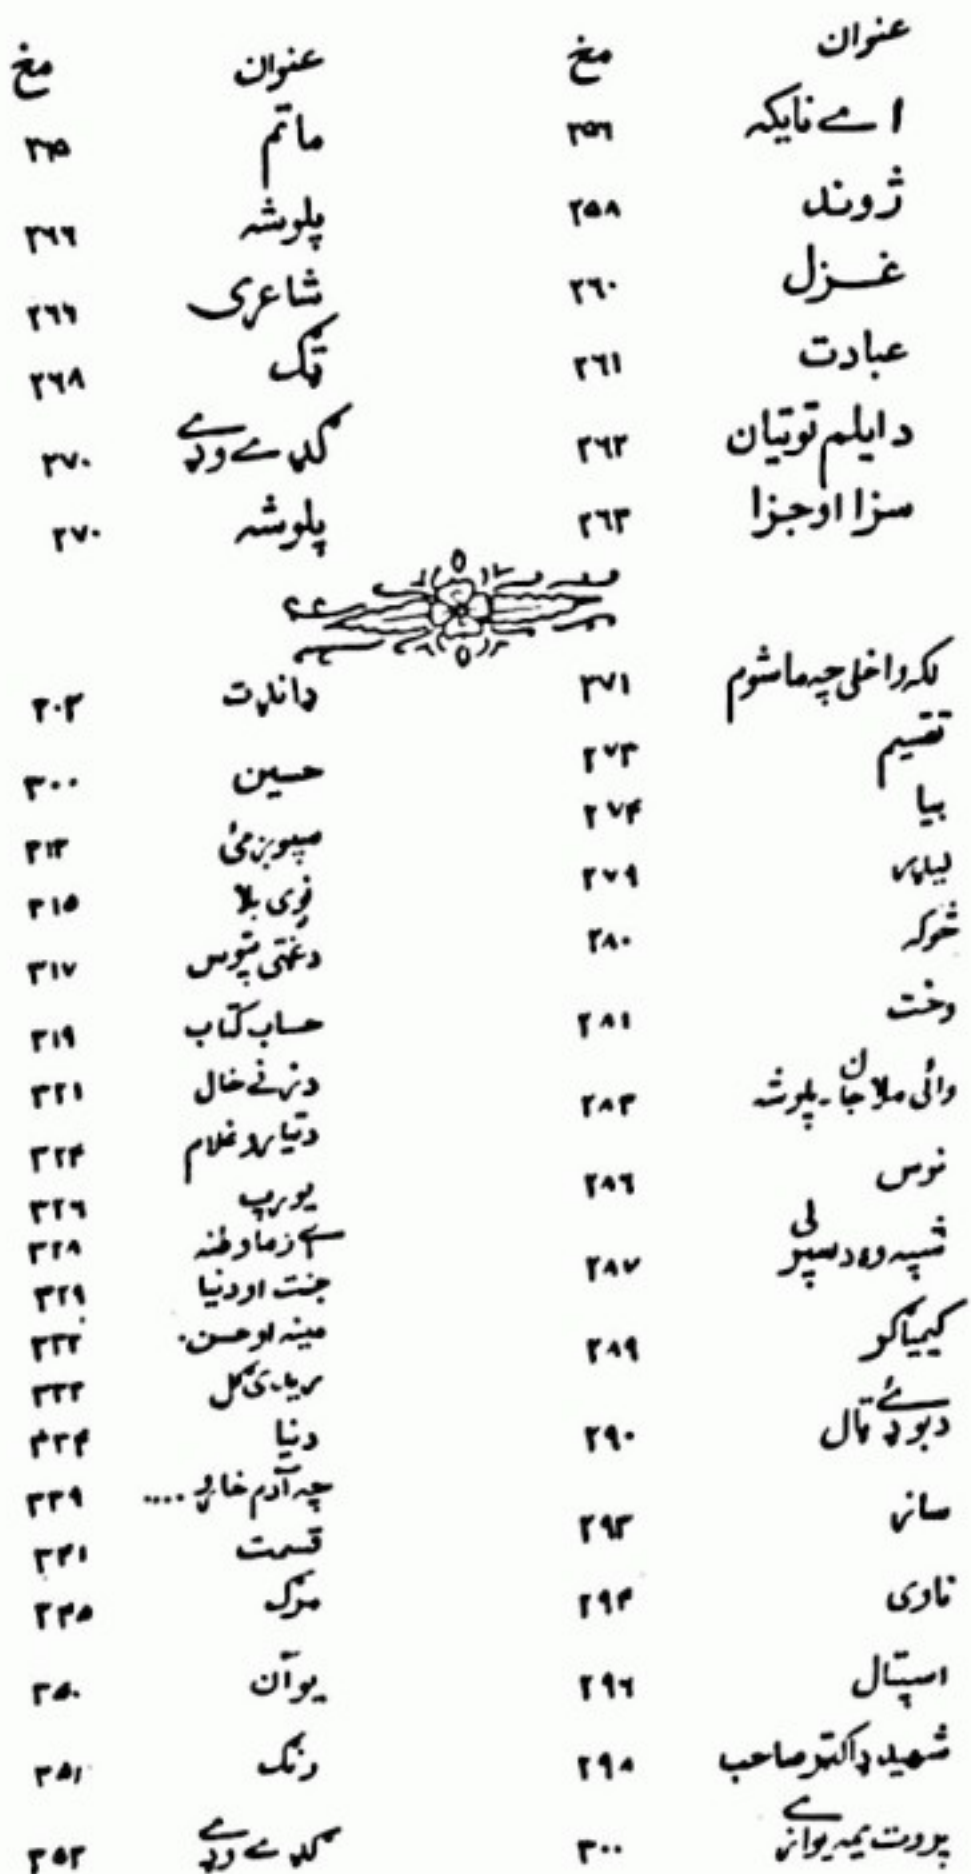 عنوان مخ
اے نایکہ ۲۵۶
ژوند ۲۵۸
غزل ۲۶۰
عبادت ۲۶۱
د ایلم توتیان ۲۶۲
سزا او جزا ۲۶۳
عنوان مخ
ماتم ۲۶۵
پلوشہ ۲۶۶
شاعری ۲۶۶
ټک ۲۶۸
ګډے وډے ۲۷۰
پلوشہ ۲۷۰
لکہ واخلی چہ ماشوم ۲۷۱
تقسیم ۲۷۳
بیا ۲۷۴
لیډر ۲۷۹
څوکہ ۲۸۰
وخت ۲۸۱
وائی ملا جان۔ پلوشہ ۲۸۳
نوس ۲۸۶
شپہ وہ د سپوږمۍ ۲۸۷
کیمیاګر ۲۸۹
د بوډۍ ټال ۲۹۰
ساز ۲۹۳
ناوی ۲۹۴
اسپتال ۲۹۶
شهید ډاکټر صاحب ۲۹۸
پروت یمہ یوازے ۳۰۰
ډانډت ۳۰۲
حسین ۳۰۰
سپوږمۍ ۳۱۳
بلا ۳۱۵
پتوس ۳۱۷
حساب کتاب ۳۱۹
د زنے خال ۳۲۱
غلام ۳۲۴
یورپ ۳۲۶
اے زما وطنہ ۳۲۸
جنت او دنیا ۳۲۹
مینہ او حسن ۳۳۲
ریدی ګل ۳۳۳
دنیا ۳۳۴
چہ آدم خان .... ۳۳۹
قسمت ۳۴۱
مرګ ۳۴۵
یو آن ۳۵۰
رنګ ۳۵۱
ګډے وډے ۳۵۳